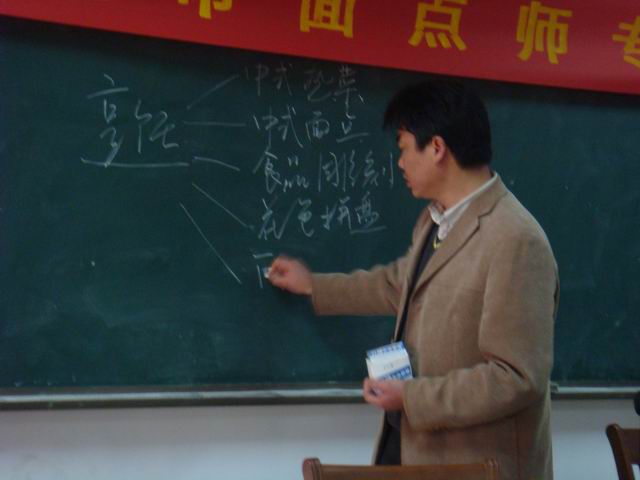 市面点师专
烹饪
中式热菜
中式面点
食品雕刻
花色拼盘